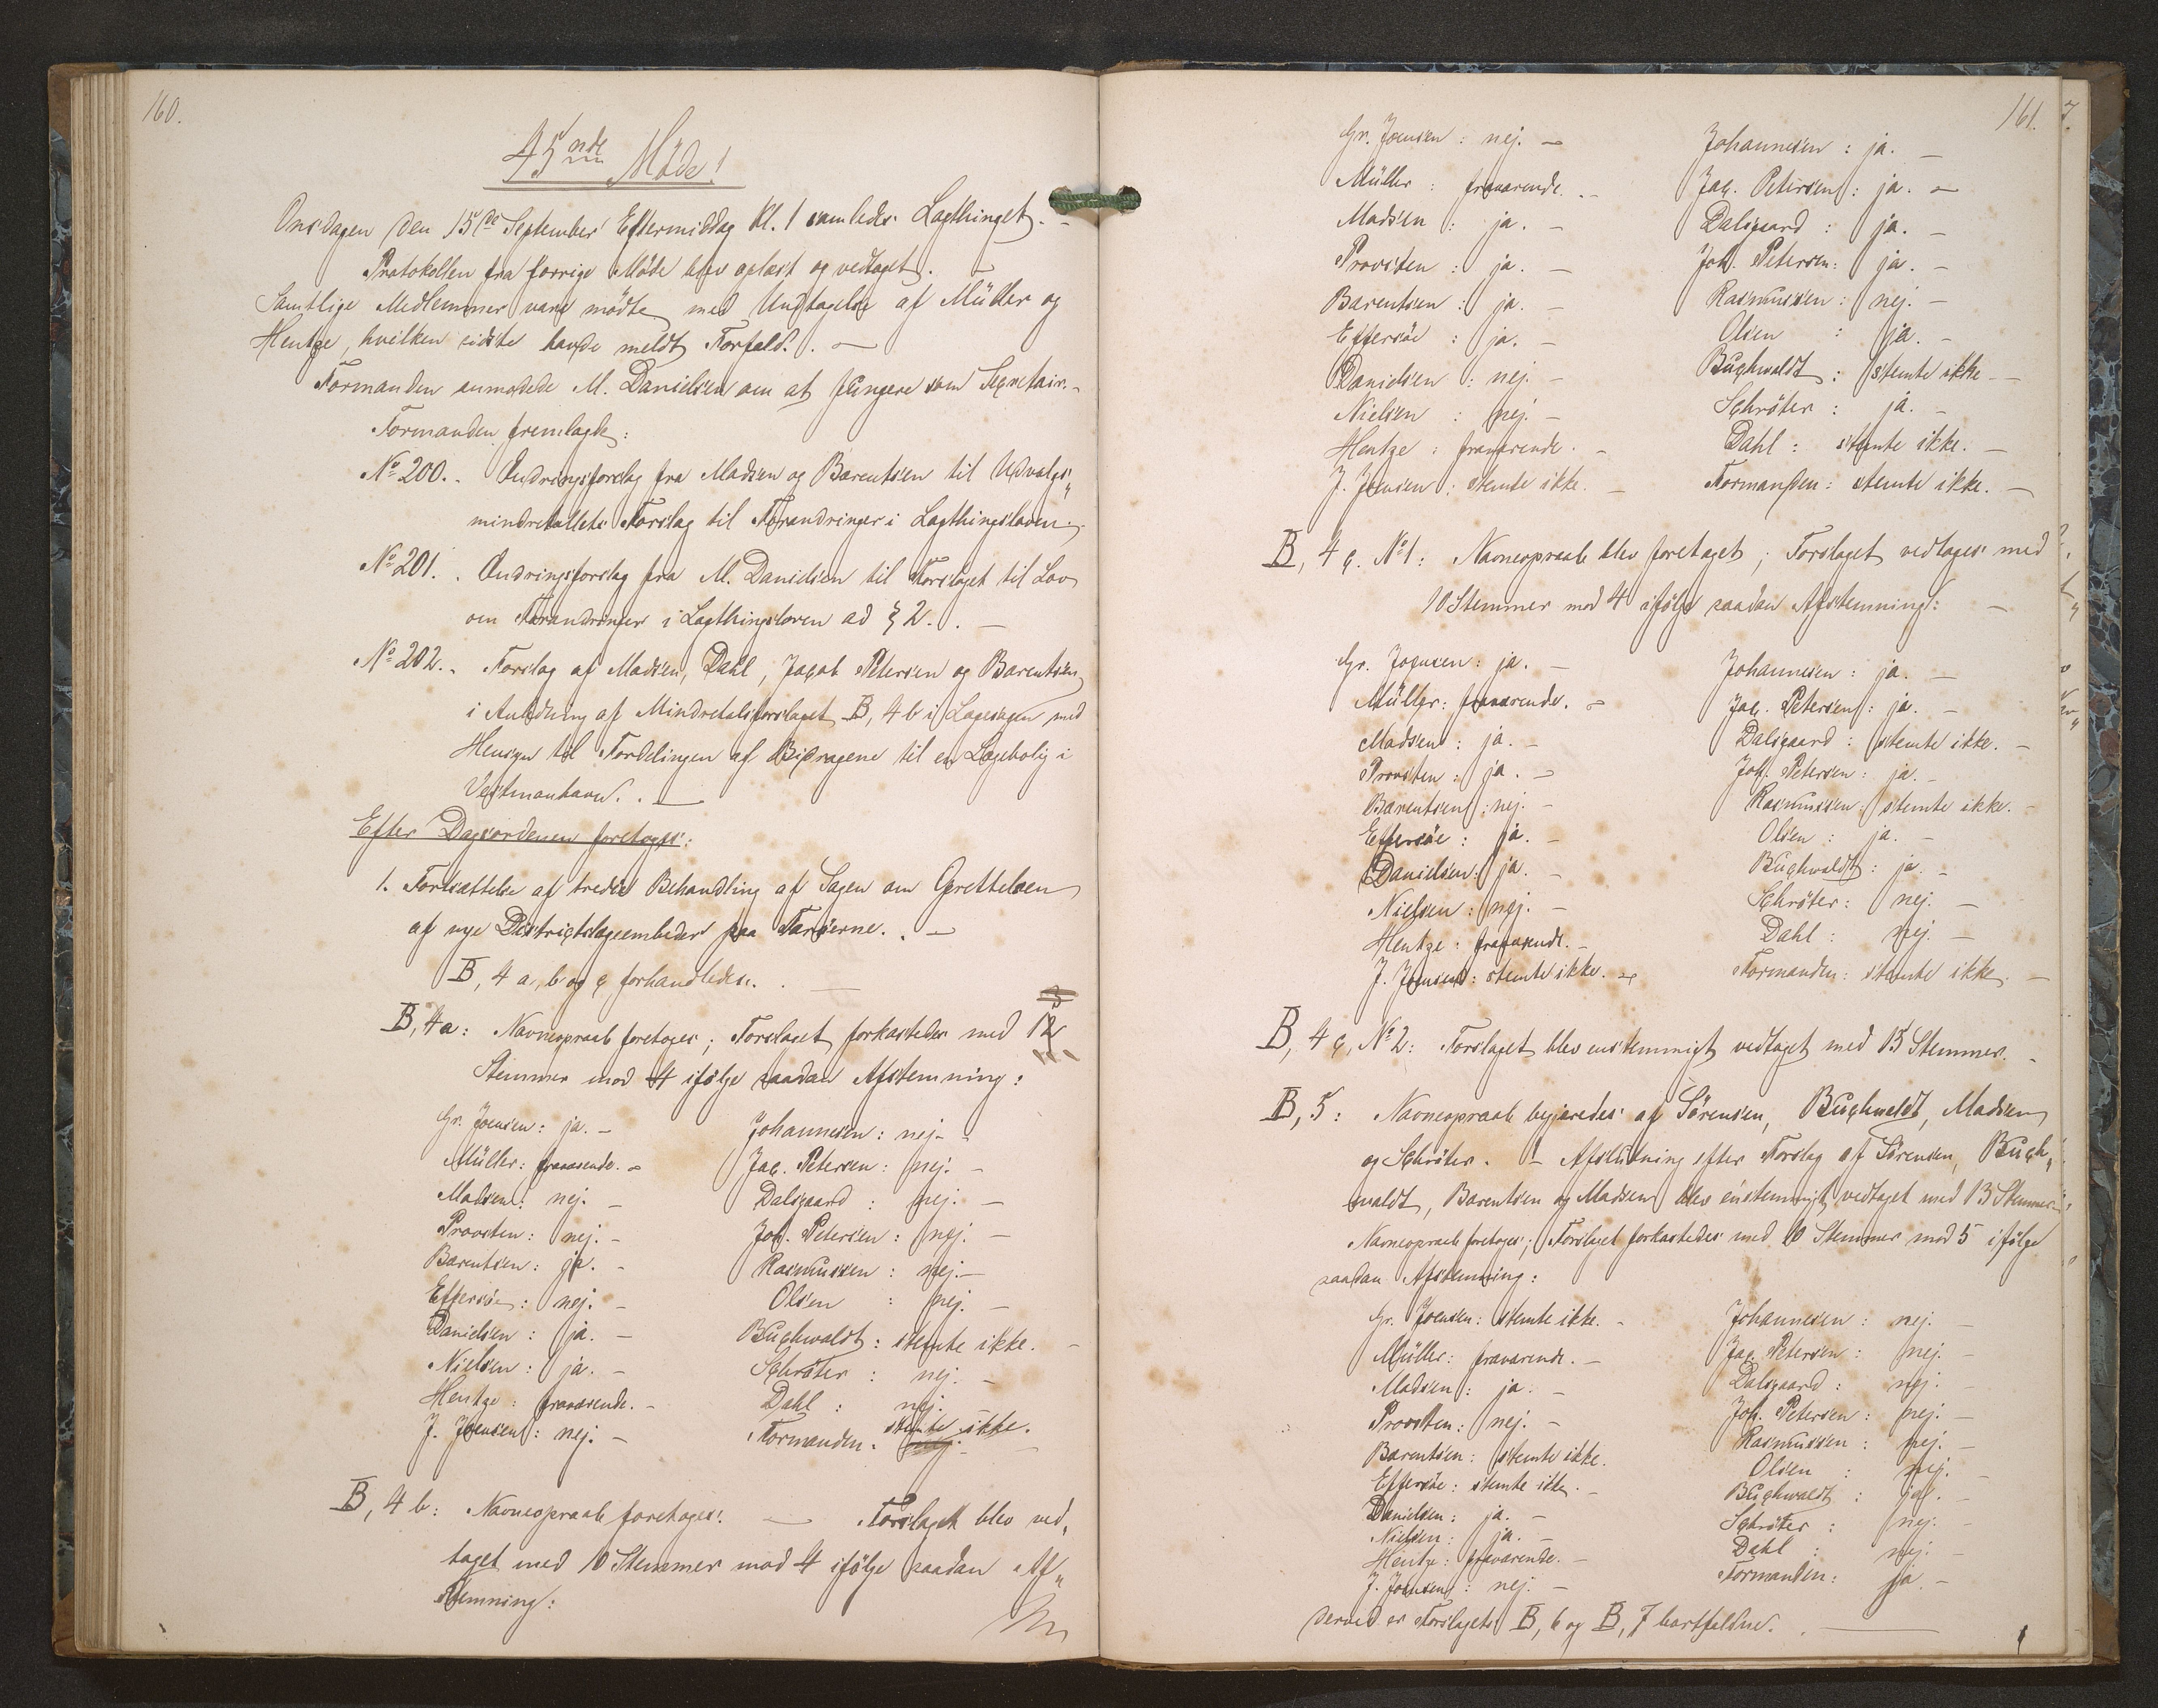 160.
45nde Møde!
Onsdagen den 15de September Eftermiddag Kl. 1 samledes Lagthinget. -
Protokollen fra forrige Møde blev oplæst og vedtaget.
Samtlige Medlemmer vare mødte med Undtagelse af Müller og
Hentze, hvilken sidste havde meldt Forfald. . -
Formanden anmodede M. Danielsen om at fungere som Secretair. -
Formanden fremlagde:
No 200. . Ændringsforslag fra Madsen og Barentsen til Udvalgs„
mindretallets Forslag til Forandringer i Lagthingsloven. -
No 201. . Ændringsforslag fra M. Danielsen til Forslaget til Lov
om Forandringer i Lagthingsloven ad § 2. . -
No 202. . Forslag af Madsen, Dahl, Jacob Petersen og Barentsen
i Anledning af Mindretalsforslaget B, 4 b i Lægesagen med
Hensyn til Fordelingen af Bidragene til en Lægebolig i
Vestmanhavn. . -
Efter Dagsordenen foretoges:
1. Fortsættelse af tredie Behandling af Sagen om Oprettelsen
af nye Districtslægeembeder paa Færøerne. . -
B, 4 a, b og c forhandledes. . -
B, 4 a: Navneopraab foretoges; Forslaget forkastedes med 12
Stemmer mod 4 ifølge saadan Afstemning:
Gr. Joensen: ja. - Johannesen: nej. -
Müller: fraværende. - Jac. Petersen: nej. -
Madsen: nej. - Dalsgaard: nej. -
Provsten: nej. - Joh. Petersen: nej. -
Barentsen: ja. - Rasmussen: nej. -
Effersøe: nej. - Olsen: nej. -
Danielsen: ja. - Buchwaldt: stemte ikke. -
Nielsen: ja. - Schrøter: nej. -
Hentze: fraværende. - Dahl: nej.
J. Joensen: nej. - Formanden: nej. stemte ikke. -
B, 4 b: Navneopraab foretoges. - Forslaget blev ved„
taget med 10 Stemmer mod 4 ifølge saadan Af„
stemning:
161.
Gr. Joensen: nej. - Johannesen: ja. -
Müller: fraværende. - Jac. Petersen: ja. -
Madsen: ja. - Dalsgaard: ja. -
Provsten: ja. - Joh. Petersen: ja. -
Barentsen: ja. - Rasmussen: nej. -
Effersøe: ja. - Olsen: ja. -
Danielsen: nej. - Buchwaldt: stemte ikke. -
Nielsen: nej. - Schrøter: ja. -
Hentze: fraværende. - Dahl: stemte ikke. -
J. Joensen: stemte ikke. - Formanden: stemte ikke. -
B, 4 c. No 1: Navneopraab blev foretaget; Forslaget vedtages med
10 Stemmer mod 4 ifølge saadan Afstemning: -
Gr. Joensen: ja. - Johannesen: ja. -
Müller: fraværende. - Jac. Petersen: ja. -
Madsen: ja. - Dalsgaard: stemte ikke. -
Provsten: ja. - Joh. Petersen: ja. -
Barentsen: nej. - Rasmussen: stemte ikke. -
Effersøe: ja. - Olsen: ja. -
Danielsen: ja. - Buchwaldt: ja. -
Nielsen: nej. - Schrøter: nej. -
Hentze: fraværende. - Dahl: nej. -
J. Joensen: stemte ikke. - Formanden: stemte ikke. -
B, 4 c, No 2: Forslaget blev enstemmigt vedtaget med 15 Stemmer. -
B, 5: Navneopraab begjæredes af Sørensen, Buchwaldt, Madsen
og Schrøter. - Afslutning efter Forslag af Sørensen, Buch„
waldt, Barentsen og Madsen blev enstemmigt vedtaget med 13 Stemmer. -
Navneopraab foretoges; Forslaget forkastedes med 10 Stemmer mod 5 ifølge
saadan Afstemning:
Gr. Joensen: stemte ikke. - Johannesen: nej. -
Müller: fraværende. - Jac. Petersen: nej. -
Madsen: ja. - Dalsgaard: nej. -
Provsten: nej. - Joh. Petersen: nej. -
Barentsen: stemte ikke. Rasmussen: nej. -
Effersøe: stemte ikke. - Olsen: nej. -
Danielsen: ja. - Buchwaldt: ja. -
Nielsen: ja. - Schrøter: nej. -
Hentze: fraværende. - Dahl: nej. -
J. Joensen: nej. - Formanden: ja. -
Derved er Forslagets B, 6 og B, 7 bortfaldne. . -